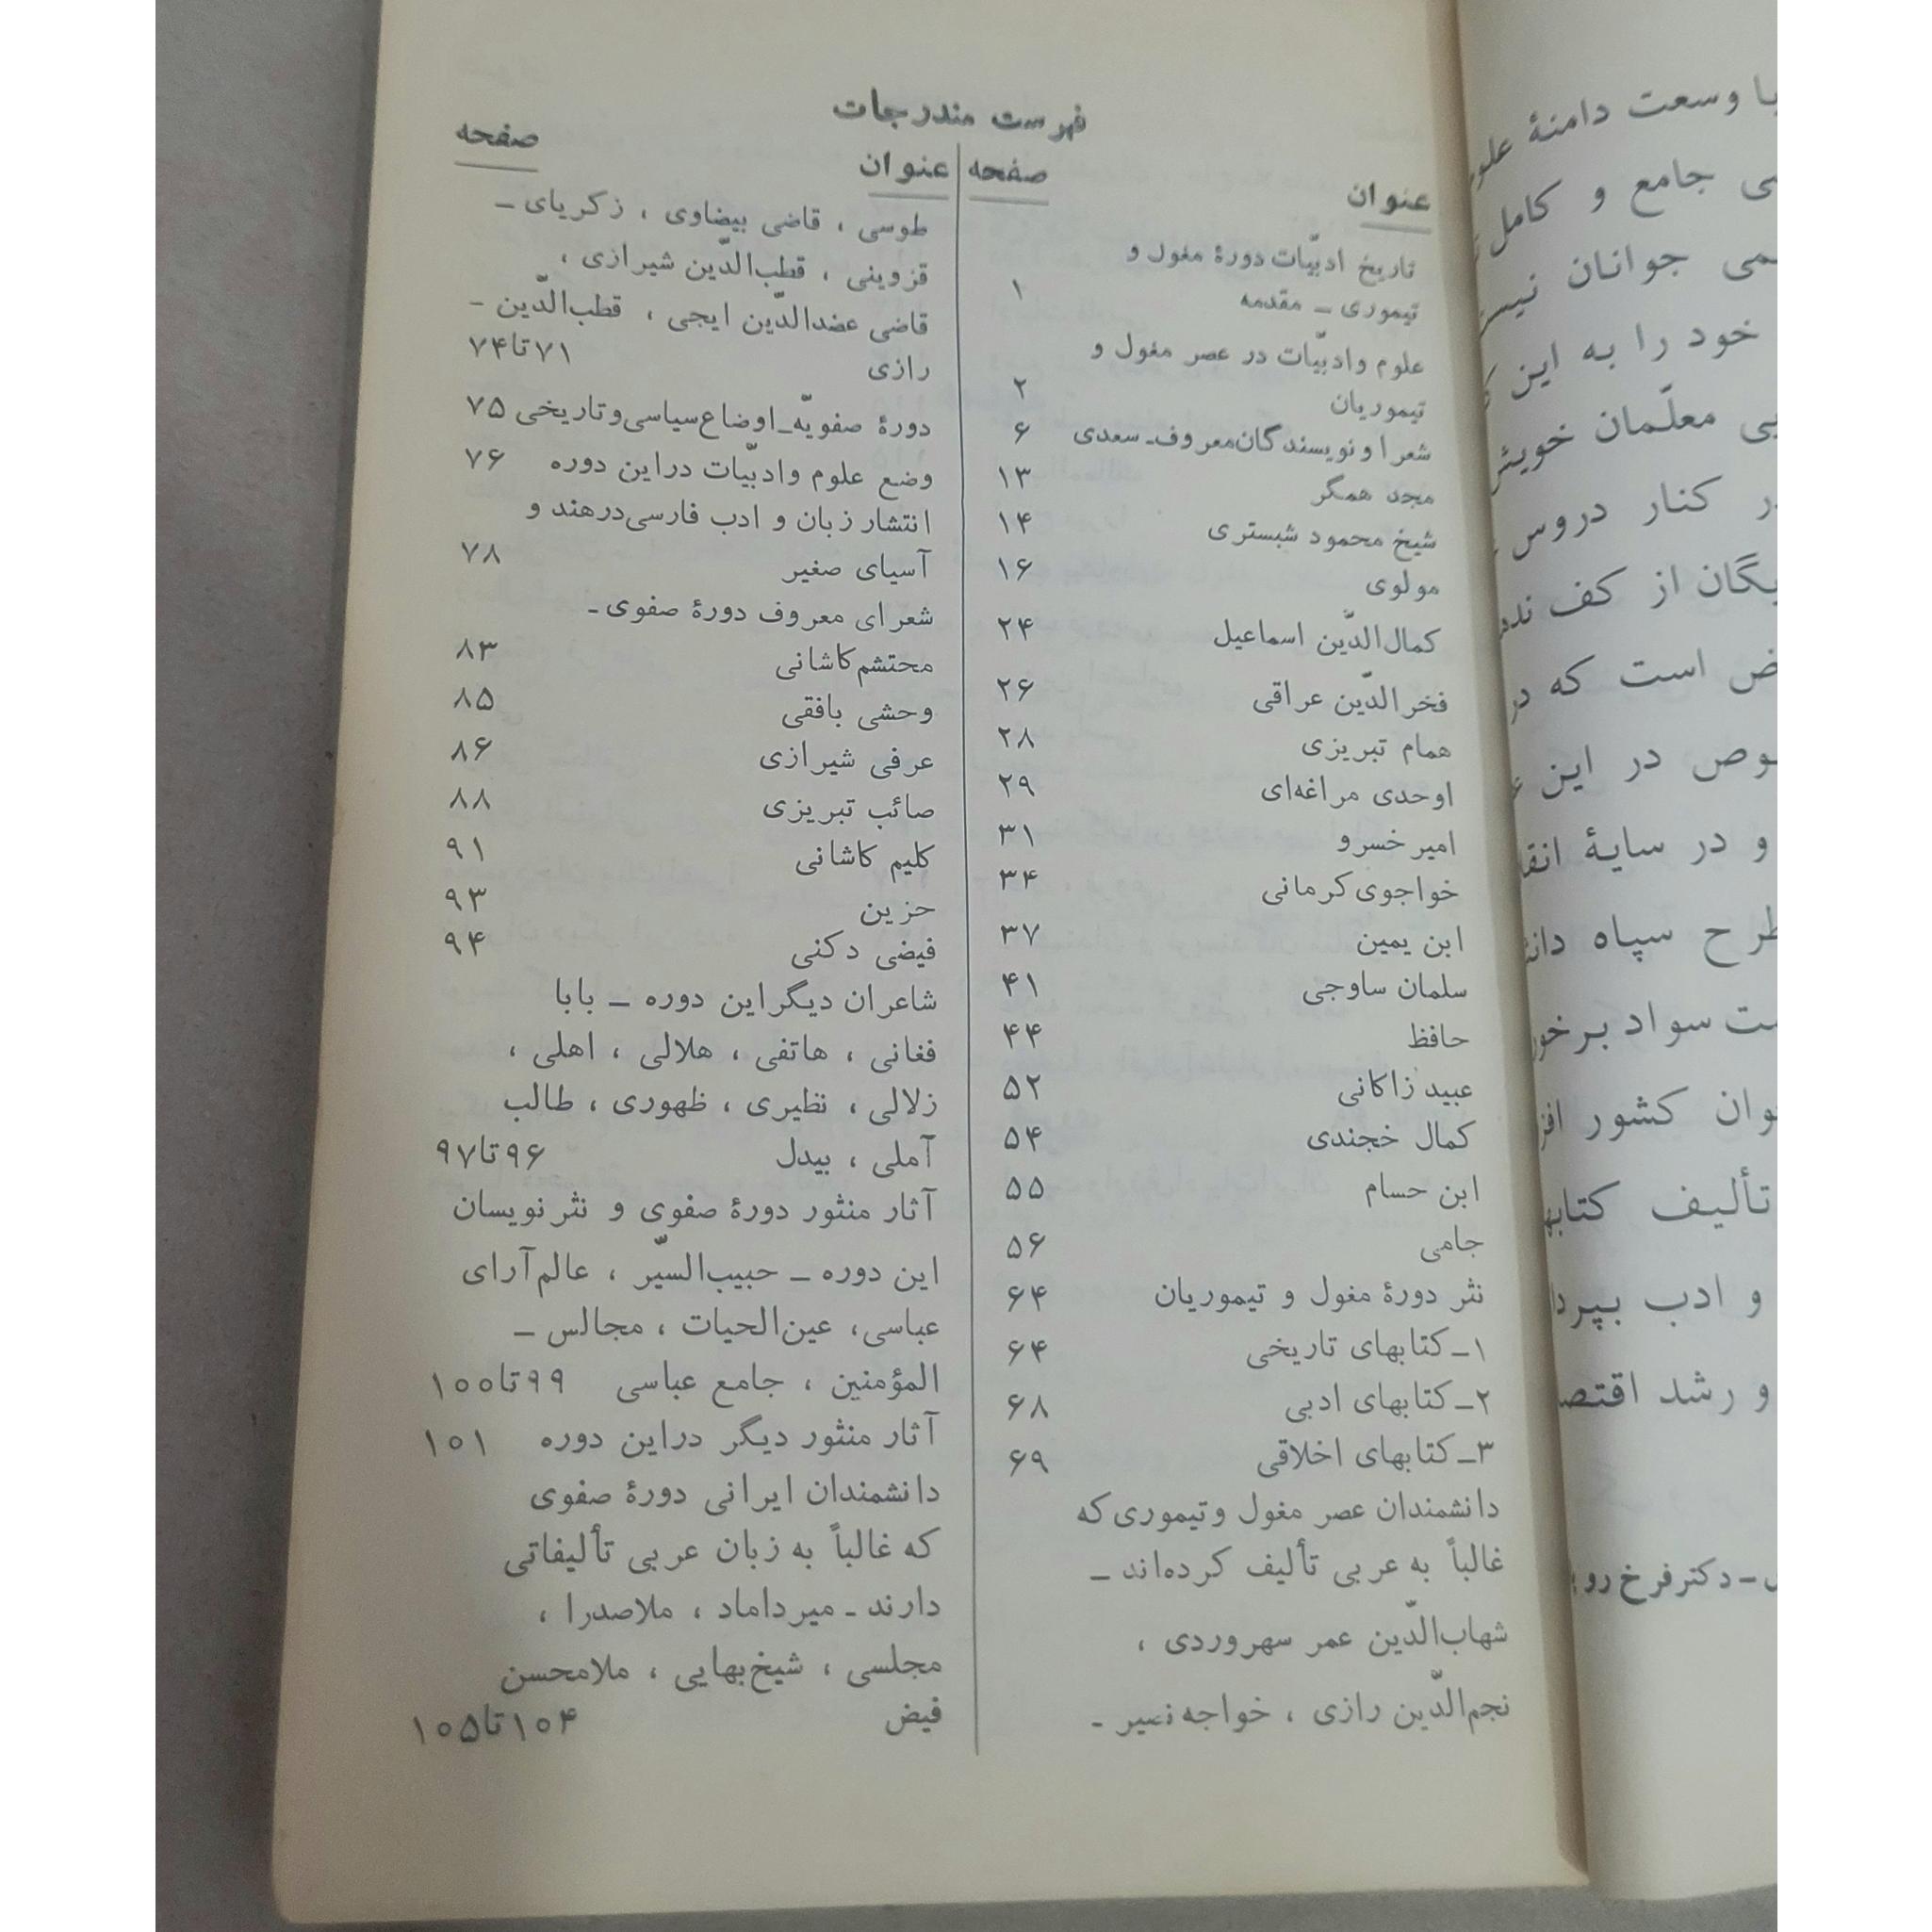 فهرست مندرجات
عنوان صفحه
تاریخ ادبیّات دورهٔ مغول و
تیموری ــ مقدمه ۱
علوم وادبیّات در عصر مغول و
تیموریان ۲
شعرا و نویسندگان‌معروف‌ـ سعدی ۶
مجد همگر ۱۳
شیخ محمود شبستری ۱۴
مولوی ۱۶
کمال‌الدّین اسماعیل ۲۴
فخرالدّین عراقی ۲۶
همام تبریزی ۲۸
اوحدی مراغه‌ای ۲۹
امیر خسرو ۳۱
خواجوی کرمانی ۳۴
ابن یمین ۳۷
سلمان ساوجی ۴۱
حافظ ۴۴
عبید زاکانی ۵۲
کمال خجندی ۵۴
ابن حسام ۵۵
جامی ۵۶
نثر دورهٔ مغول و تیموریان ۶۴
۱ــ کتابهای تاریخی ۶۴
۲ــ کتابهای ادبی ۶۸
۳ــ کتابهای اخلاقی ۶۹
دانشمندان عصر مغول وتیموری که
غالباً به عربی تألیف کرده‌اند ــ
شهاب‌الدّین عمر سهروردی ،
نجم‌الدّین رازی ، خواجه نصیر ـ
عنوان صفحه
طوسی ، قاضی بیضاوی ، زکریای ــ
قزوینی ، قطب‌الدّین شیرازی ،
قاضی عضدالدّین ایجی ، قطب‌الدّین -
رازی ۷۱تا۷۴
دورهٔ صفویّه‌ــ‌اوضاع‌سیاسی‌وتاریخی ۷۵
وضع علوم وادبیّات دراین دوره ۷۶
انتشار زبان و ادب فارسی‌درهند و
آسیای صغیر ۷۸
شعرای معروف دورهٔ صفوی ـ
محتشم‌کاشانی ۸۳
وحشی بافقی ۸۵
عرفی شیرازی ۸۶
صائب تبریزی ۸۸
کلیم کاشانی ۹۱
حزین ۹۳
فیضی دکنی ۹۴
شاعران دیگراین دوره ــ بابا
فغانی ، هاتفی ، هلالی ، اهلی ،
زلالی ، نظیری ، ظهوری ، طالب
آملی ، بیدل ۹۶تا۹۷
آثار منثور دورهٔ صفوی و نثرنویسان
این دوره ــ حبیب‌السیّر ، عالم‌آرای
عباسی، عین‌الحیات ، مجالس ــ
المؤمنین ، جامع عباسی ۹۹تا۱۰۰
آثار منثور دیگر دراین دوره ۱۰۱
دانشمندان ایرانی دورهٔ صفوی
که غالباً به زبان عربی تألیفاتی
دارند ـ میرداماد ، ملاصدرا ،
مجلسی ، شیخ‌بهایی ، ملامحسن
فیض ۱۰۴تا۱۰۵
با وسعت دامنهٔ
جامع و کامل
جوانان
خود را به این
معلّمان
کنار دروس
از کف
است که در
در این
و در سایهٔ
سپاه
سواد
کشور
تألیف
و ادب
و رشد
ـ دکتر فرخ رو